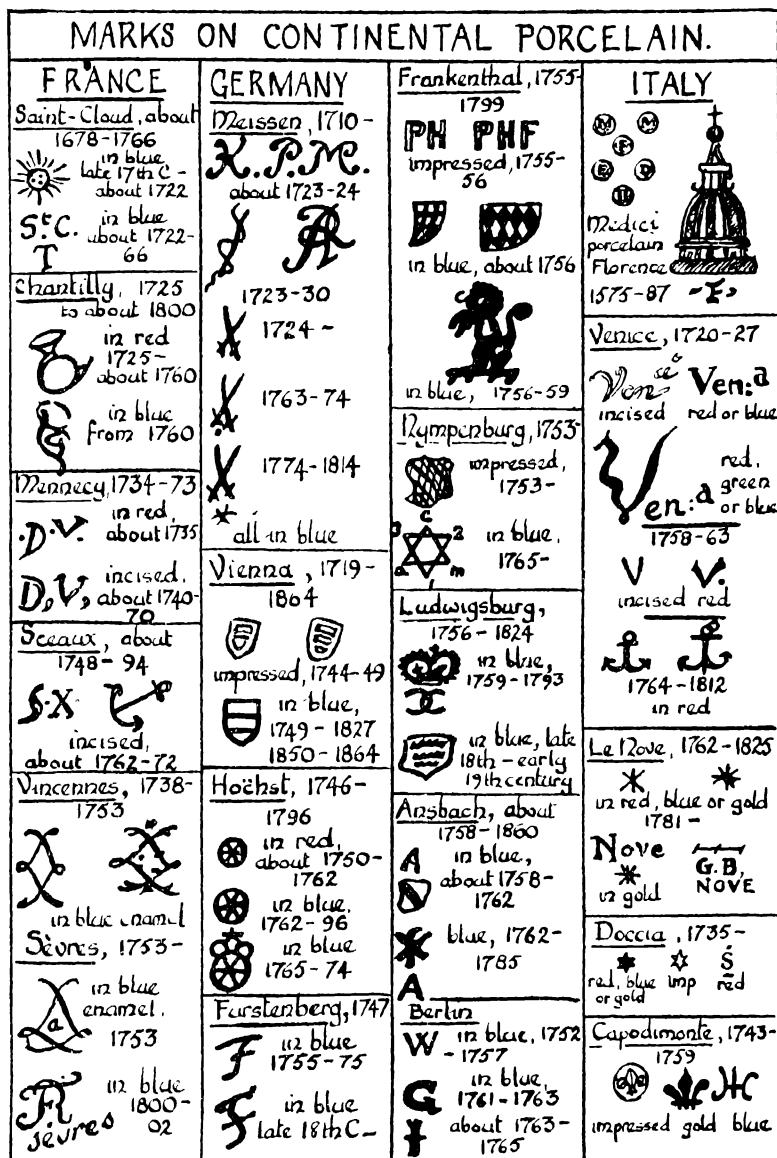 MARKS ON CONTINENTAL PORCELAIN.
FRANCE
Saint-Cloud, about
1678-1766
in blue
late 17th C-
about 1722
St C.
T
in blue
about 1722-
66
Chantilly, 1725
to about 1800
in red
1725-
about 1760
in blue
from 1760
Mennecy, 1734-73
.D.V.
in red,
about 1735
D,V,
incised,
about 1740-
70
Sceaux, about
1748-94
S·X
incised,
about 1762-72
Vincennes, 1738-
1753
in blue enamel
Sèvres, 1753-
a
in blue
enamel.
1753
R
sèvres
in blue
1800-
02
GERMANY
Meissen, 1710-
K.P.M.
about 1723-24
AR
1723-30
1724-
1763-74
1774-1814
all in blue
Vienna, 1719-
1864
impressed, 1744-49
in blue,
1749-1827
1850-1864
Hoëhst, 1746-
1796
in red,
about 1750-
1762
in blue,
1762-96
in blue
1765-74
Furstenberg, 1747
F
in blue
1755-75
F
in blue
late 18th C-
Frankenthal, 1755-
1799
PH PHF
impressed, 1755-
56
in blue, about 1756
in blue, 1756-59
Nympenburg, 1753-
impressed,
1753-
in blue,
1765-
Ludwigsburg,
1756-1824
in blue,
1759-1793
in blue, late
18th-early
19th century
Ansbach, about
1758-1860
A
in blue,
about 1758-
1762
blue, 1762-
1785
A
Berlin
W
in blue, 1752
-1757
G
in blue,
1761-1763
about 1763-
1765
ITALY
M M
F
E D
II
Medici
porcelain
Florence
1575-87
-F-
Venice, 1720-27
Ven:a
incised
red or blue
Ven:a
red,
green
or blue
1758-63
V V.
incised red
1764-1812
in red
Le Nove, 1762-1825
in red, blue or gold
1781-
Nove
in gold
G.B,
NOVE
Doccia, 1735-
S
red, blue
or gold
imp
red
Capodimonte, 1743-
1759
impressed gold blue